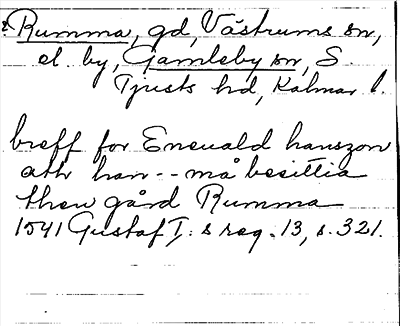 ? Rumma, gd, Västrums sn,
el. by, Gamleby sn, S.
Tjusts hd, Kalmar l.
breff for Eneuald hanszon
ath han -- må besittia
then gård Rumma
1541 Gustaf I: s reg. 13, s. 321.